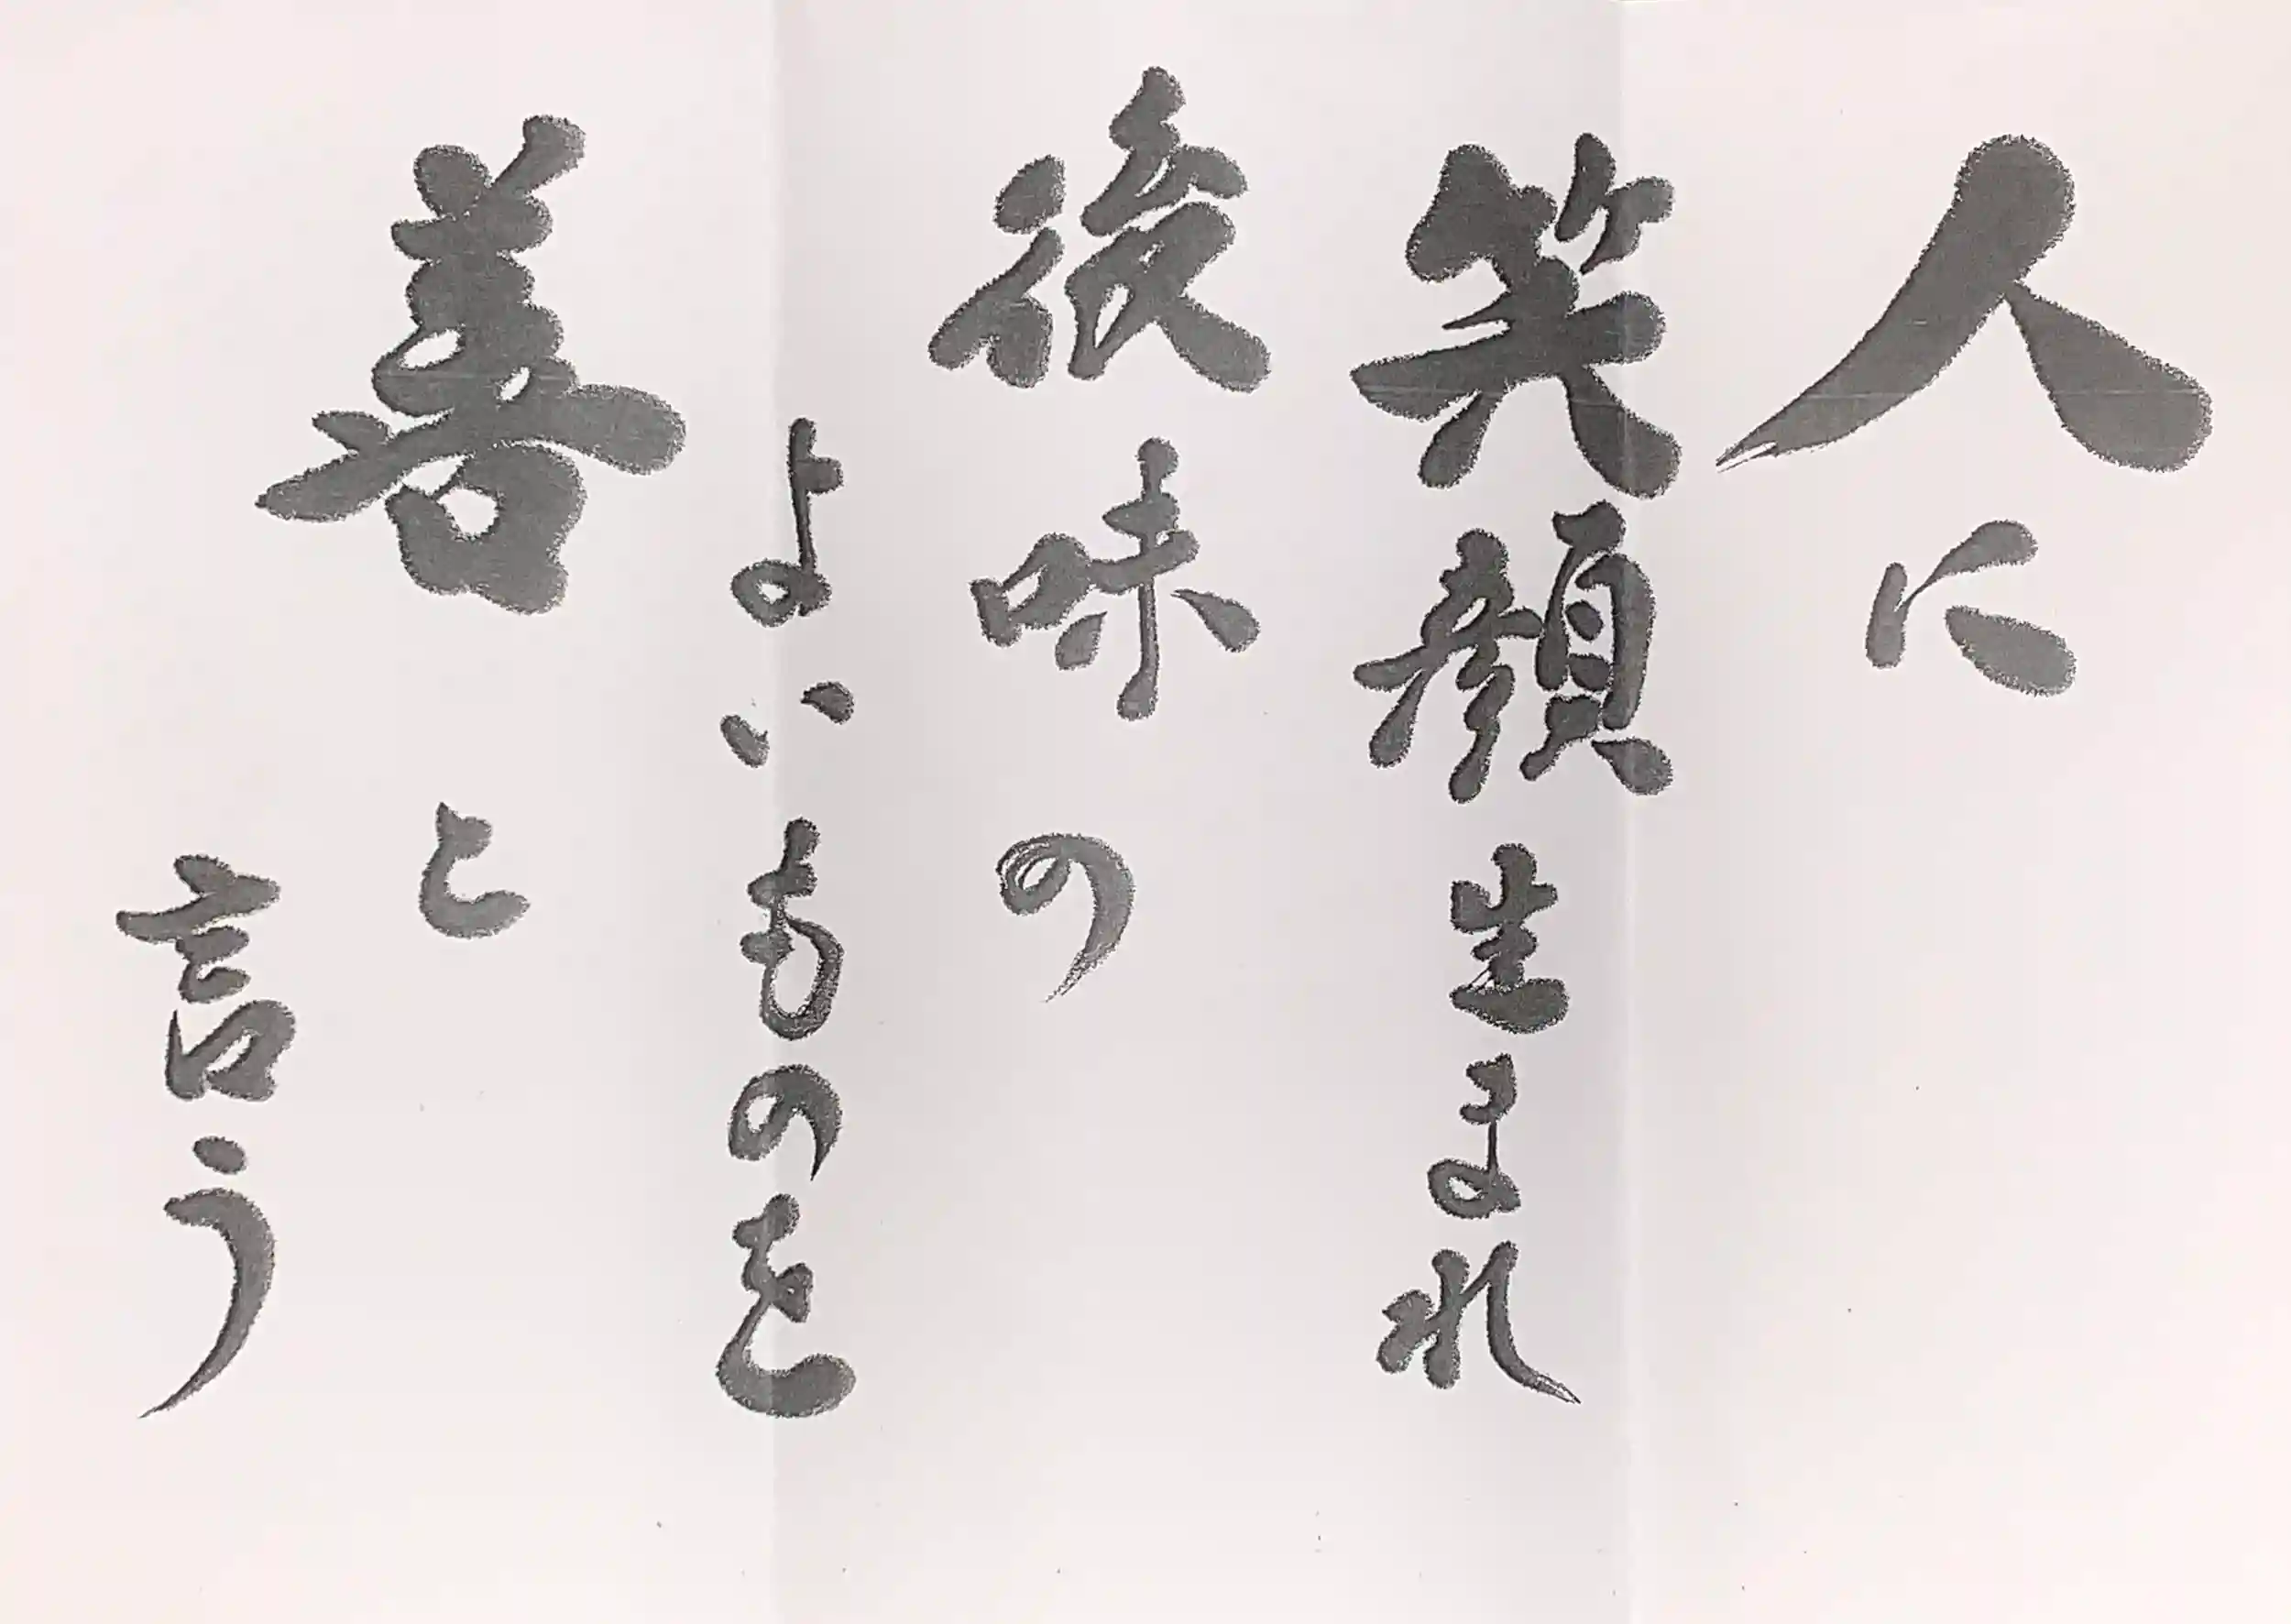 人に
笑顔生まれ
後味の
よいものを
善と
言う